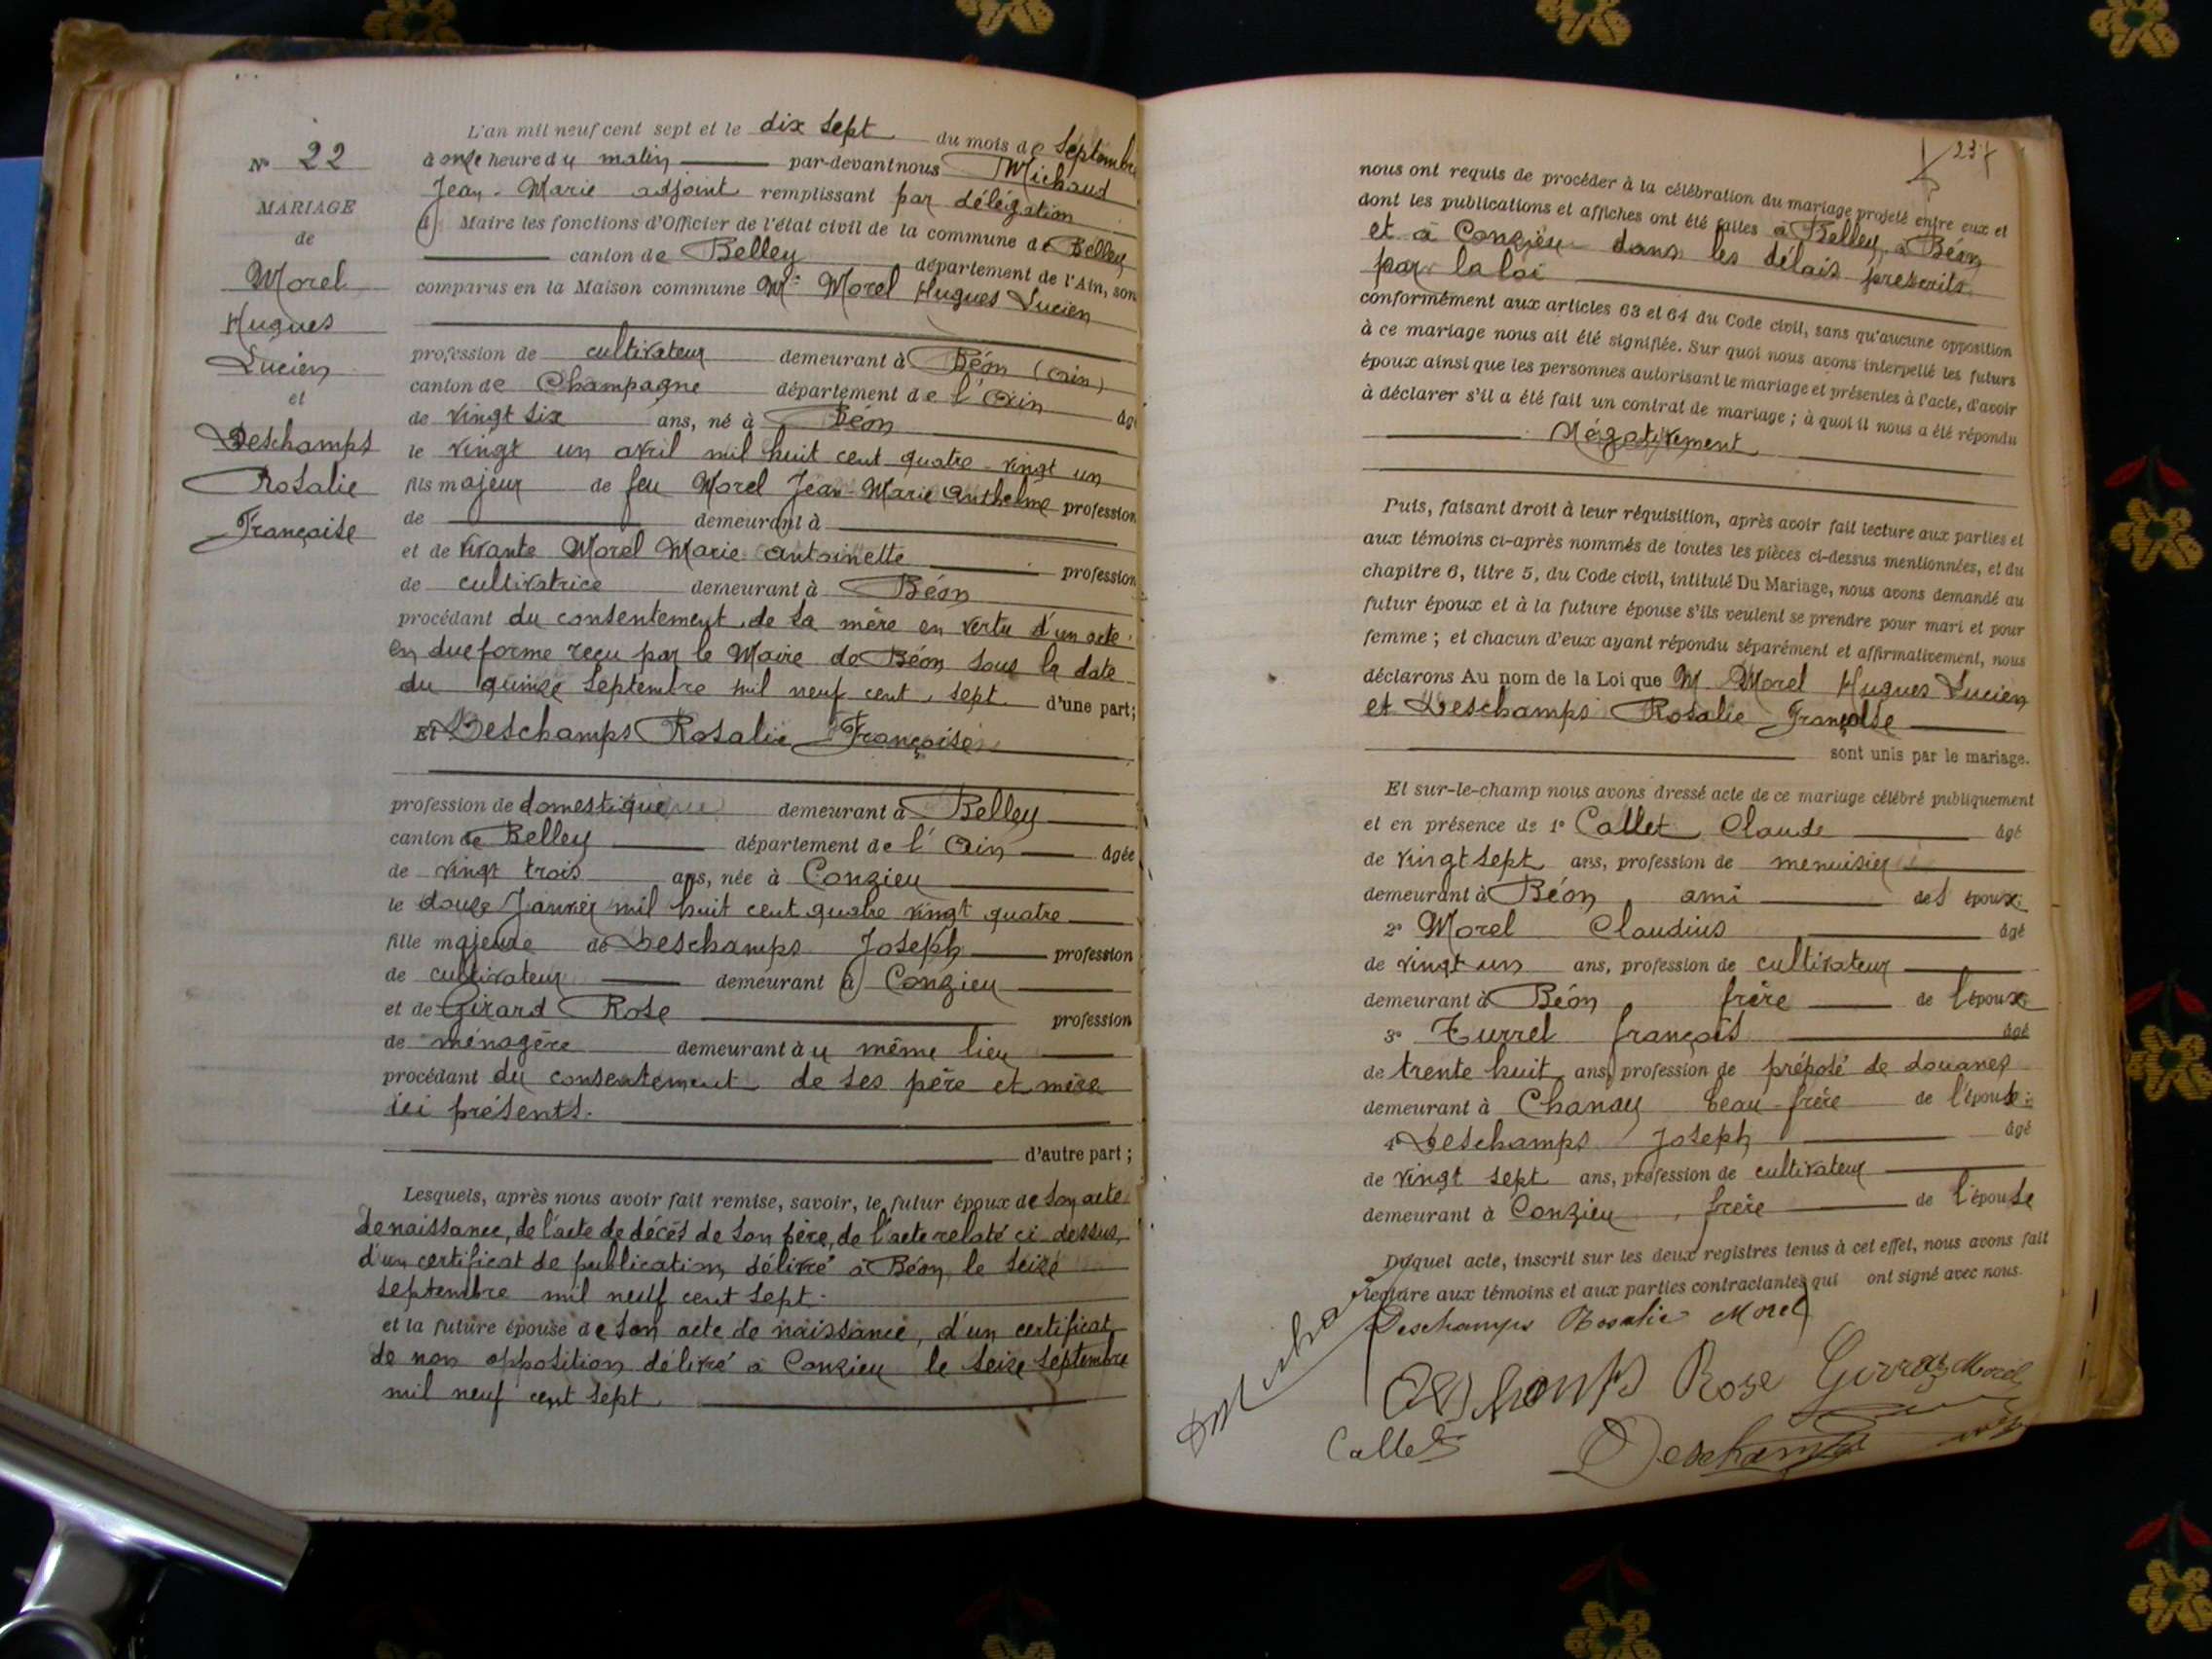 N° 22
MARIAGE
de
Morel
Hugues
Lucien
et
Deschamps
Rosalie
Françoise
L'an mil neuf cent sept et le dix sept du mois de Septembre
à onze heure du matin par-devant nous Michaud
Jean-Marie adjoint remplissant par délégation
d Maire les fonctions d'Officier de l'état civil de la commune de Belley
canton de Belley département de l'Ain, son
comparus en la Maison commune Mr Morel Hugues Lucien
profession de cultivateur demeurant à Béon (Ain)
canton de Champagne département de l'Ain âgé
de vingt six ans, né à Béon
le vingt un avril mil huit cent quatre-vingt un
fils majeur de feu Morel Jean-Marie Anthelme profession
de demeurant à
et de vivante Morel Marie-Antoinette profession
de cultivatrice demeurant à Béon
procédant du consentement de sa mère en vertu d'un acte
en due forme reçu par le Maire de Béon sous la date
du quinze Septembre mil neuf cent sept d'une part;
Et Deschamps Rosalie Françoise
profession de domestique demeurant à Belley
canton de Belley département de l'Ain âgée
de vingt trois ans, née à Conzieu
le douze Janvier mil huit cent quatre vingt quatre
fille majeure de Deschamps Joseph profession
de cultivateur demeurant à Conzieu
et de Girard Rose profession
de ménagère demeurant au même lieu
procédant du consentement de ses père et mère
ici présents.
d'autre part;
Lesquels, après nous avoir fait remise, savoir, le futur époux de son acte
de naissance, de l'acte de décès de son père, de l'acte relaté ci dessus,
d'un certificat de publication délivré à Béon, le seize
septembre mil neuf cent sept.
et la future épouse de son acte de naissance, d'un certificat
de non opposition délivré à Conzieu le seize septembre
mil neuf cent sept.
23
nous ont requis de procéder à la célébration du mariage projeté entre eux et
dont les publications et affiches ont été faites à Belley, à Béon
et à Conzieu dans les délais prescrits
par la loi
conformément aux articles 63 et 64 du Code civil, sans qu'aucune opposition
à ce mariage nous ait été signifiée. Sur quoi nous avons interpellé les futurs
époux ainsi que les personnes autorisant le mariage et présentes à l'acte, d'avoir
à déclarer s'il a été fait un contrat de mariage; à quoi il nous a été répondu
Négativement
Puis, faisant droit à leur réquisition, après avoir fait lecture aux parties et
aux témoins ci-après nommés de toutes les pièces ci-dessus mentionnées, et du
chapitre 6, titre 5, du Code civil, intitulé Du Mariage, nous avons demandé au
futur époux et à la future épouse s'ils veulent se prendre pour mari et pour
femme; et chacun d'eux ayant répondu séparément et affirmativement, nous
déclarons Au nom de la Loi que M. Morel Hugues Lucien
et Deschamps Rosalie Françoise
sont unis par le mariage.
Et sur-le-champ nous avons dressé acte de ce mariage célébré publiquement
et en présence de 1° Callet Claude âgé
de vingt sept ans, profession de menuisier
demeurant à Béon ami des époux
2° Morel Claudius âgé
de vingt un ans, profession de cultivateur
demeurant à Béon, frère de l'époux
3° Turrel françois âgé
de trente huit ans, profession de préposé de douanes
demeurant à Chanay beau-frère de l'épouse
4° Deschamps Joseph âgé
de vingt sept ans, profession de cultivateur
demeurant à Conzieu, frère de l'épouse
Duquel acte, inscrit sur les deux registres tenus à cet effet, nous avons fait
lecture aux témoins et aux parties contractantes qui ont signé avec nous.
Deschamps Rosalie Morel
Rose Morel
Callet
Deschamps